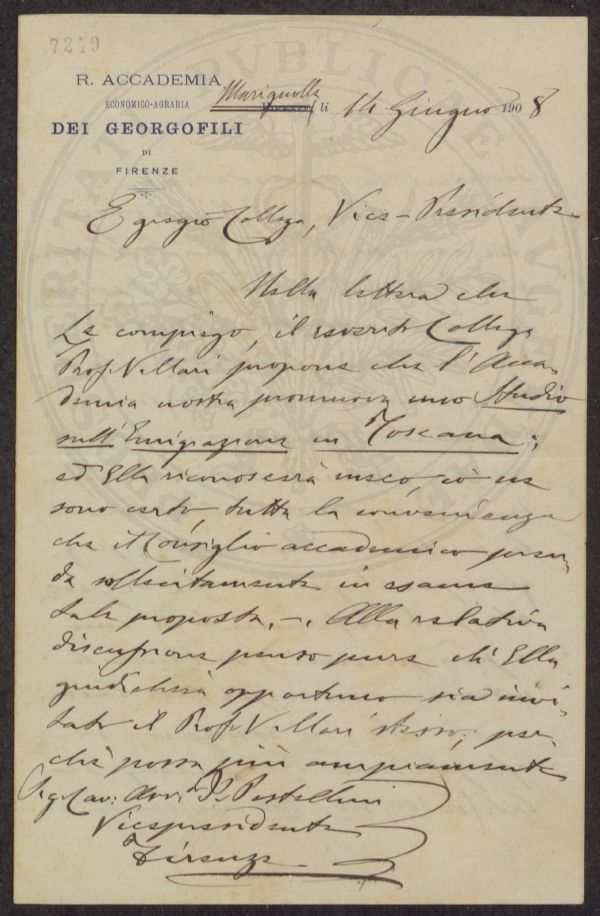 7219
R. ACCADEMIA
ECONOMICO-AGRARIA
DEI GEORGOFILI
DI
FIRENZE
Marignolle
Firenze, li 14 Giugno 1908
Egregio Collega, Vice-Presidente
Nella lettera che
Le compiego, il reverito Collega
Prof. Villari propone che l'Acca-
demia nostra promuova uno Studio
sull'Emigrazione in Toscana;
ed Ella riconoscerà meco, io ne
sono certo, tutta la convenienza
che il Consiglio accademico pren-
da sollecitamente in esame
tale proposta. -. Alla relativa
discussione penso pure ch'Ella
giudicherà opportuno sia invi-
tato il Prof. Villari stesso; per-
chè possa più ampiamente
Sig. Cav. Avv. P. Pestellini
Vicepresidente
Firenze